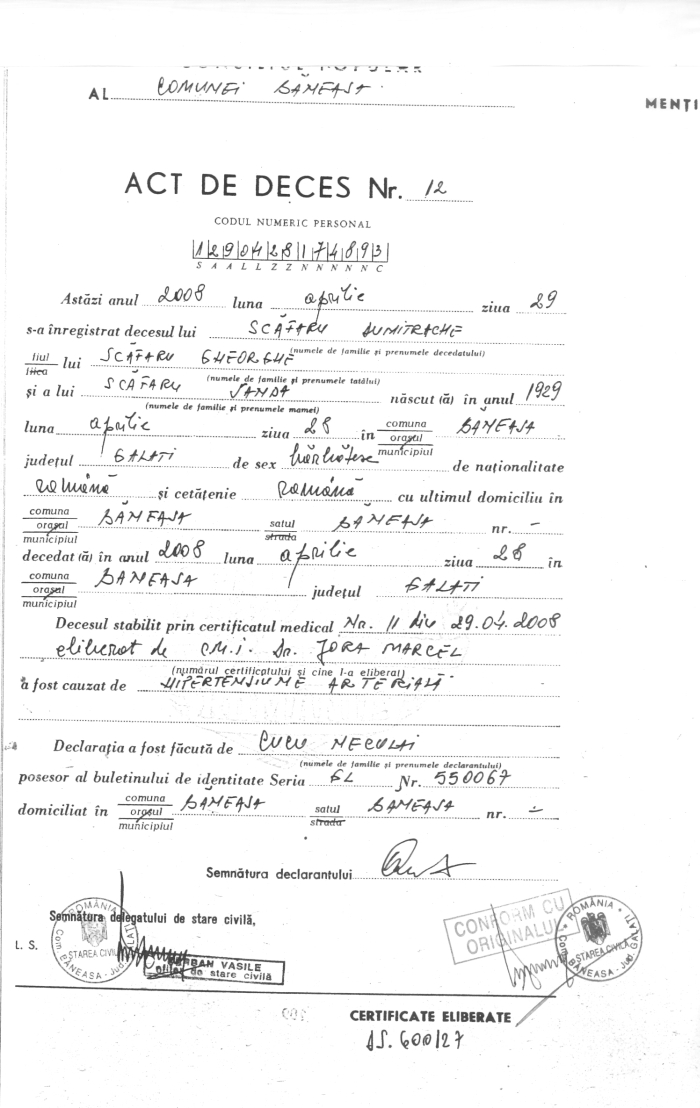 AL COMUNEI BĂNEASA
MENȚI
ACT DE DECES Nr. 12
CODUL NUMERIC PERSONAL
1 2 9 0 4 2 8 1 7 4 8 9 3
S A A L L Z Z N N N N N C
Astăzi anul 2008 luna aprilie ziua 29
s-a înregistrat decesul lui SCĂFARU DUMITRACHE
(numele de familie și prenumele decedatului)
fiul/fiica lui SCĂFARU GHEORGHE
(numele de familie și prenumele tatălui)
și a lui SCĂFARU SANDA născut (ă) în anul 1929
(numele de familie și prenumele mamei)
luna aprilie ziua 28 în comuna/orașul/municipiul BĂNEASA
județul GALAȚI de sex bărbătesc de naționalitate
română și cetățenie română cu ultimul domiciliu în
comuna/orașul/municipiul BĂNEASA satul/strada BĂNEASA nr. –
decedat (ă) în anul 2008 luna aprilie ziua 28 în
comuna/orașul/municipiul BĂNEASA județul GALAȚI
Decesul stabilit prin certificatul medical Nr. 11 din 29.04.2008
eliberat de C.M.I. Dr. JORA MARCEL
(numărul certificatului și cine l-a eliberat)
a fost cauzat de HIPERTENSIUNE ARTERIALĂ
Declarația a fost făcută de CUCU NECULAI
(numele de familie și prenumele declarantului)
posesor al buletinului de identitate Seria GL Nr. 550067
domiciliat în comuna/orașul/municipiul BĂNEASA satul/strada BĂNEASA nr. –
Semnătura declarantului
Semnătura delegatului de stare civilă,
L. S.
ROMÂNIA
STAREA CIVILĂ
Com. BĂNEASA - Jud. GALAȚI
VASILE
ofițer de stare civilă
CONFORM CU
ORIGINALUL
ROMÂNIA
STAREA CIVILĂ
Com. BĂNEASA - Jud. GALAȚI
CERTIFICATE ELIBERATE